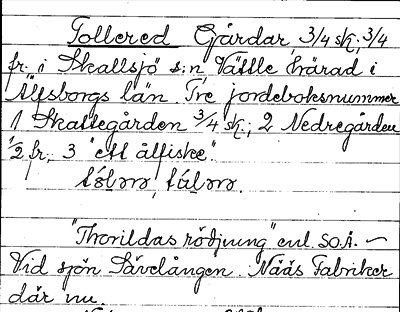 Tollered Gårdar, 3/4 sk, 3/4
fr, i Skallsjö s:n, Vättle härad i
Älfsborgs län. Tre jordeboksnummer
1 Skattegården 3/4 sk.; 2 Nedregården
1/2 fr, 3 "ett ålfiske".
"Thorildas rödjning" enl. SO.Ä. —
Vid sjön Sävelången. Nääs Fabriker
där nu.